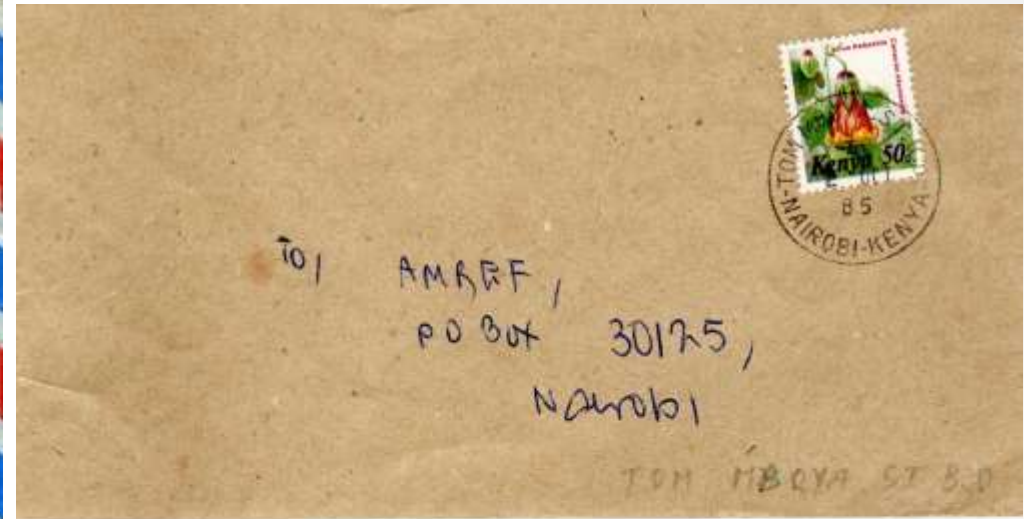 Kenya 50c
TOM
85
-NAIROBI-KENYA-
To,
AMREF,
PO Box 30125,
Nairobi
TOM MBOYA ST B.O